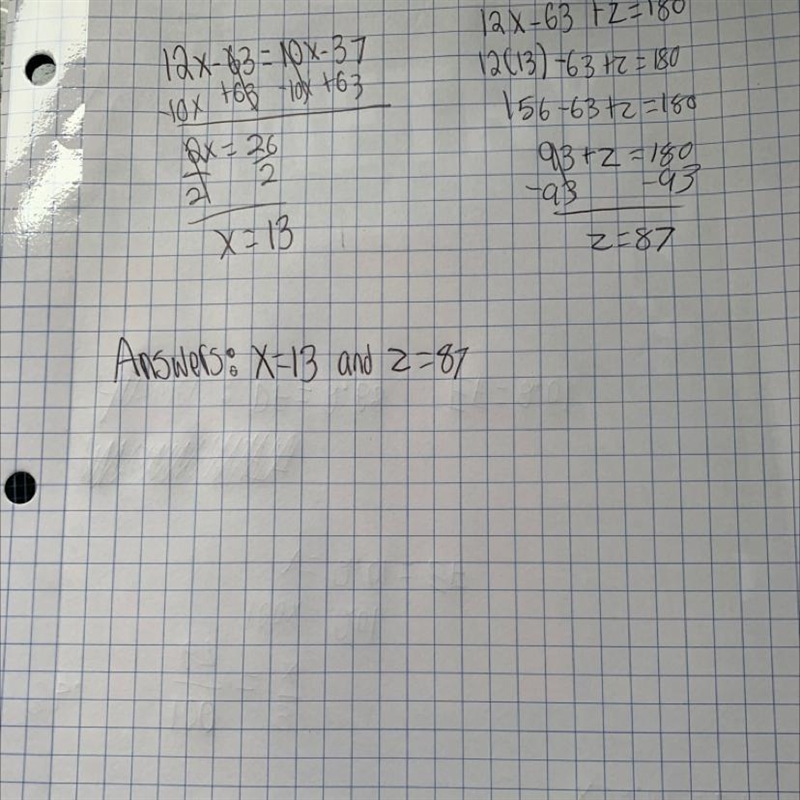 12x-63=10x-37
-10x +63 -10x+63
2x = 26
2 2
x=13
12x-63+z=180
12(13)-63+z=180
156-63+z=180
93+z=180
-93 -93
z=87
Answers: x=13 and z=87